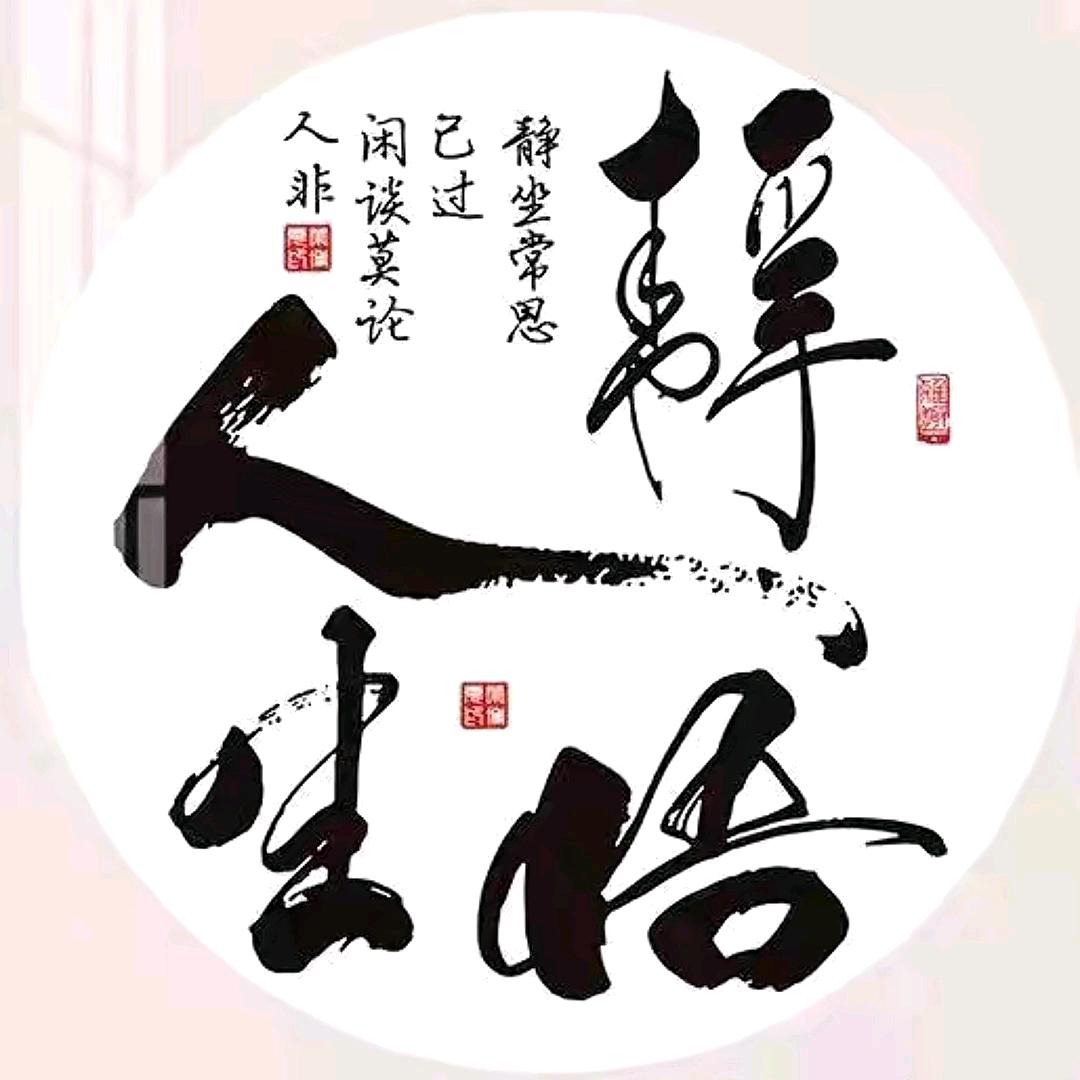 静悟
人生
静坐常思
己过
闲谈莫论
人非